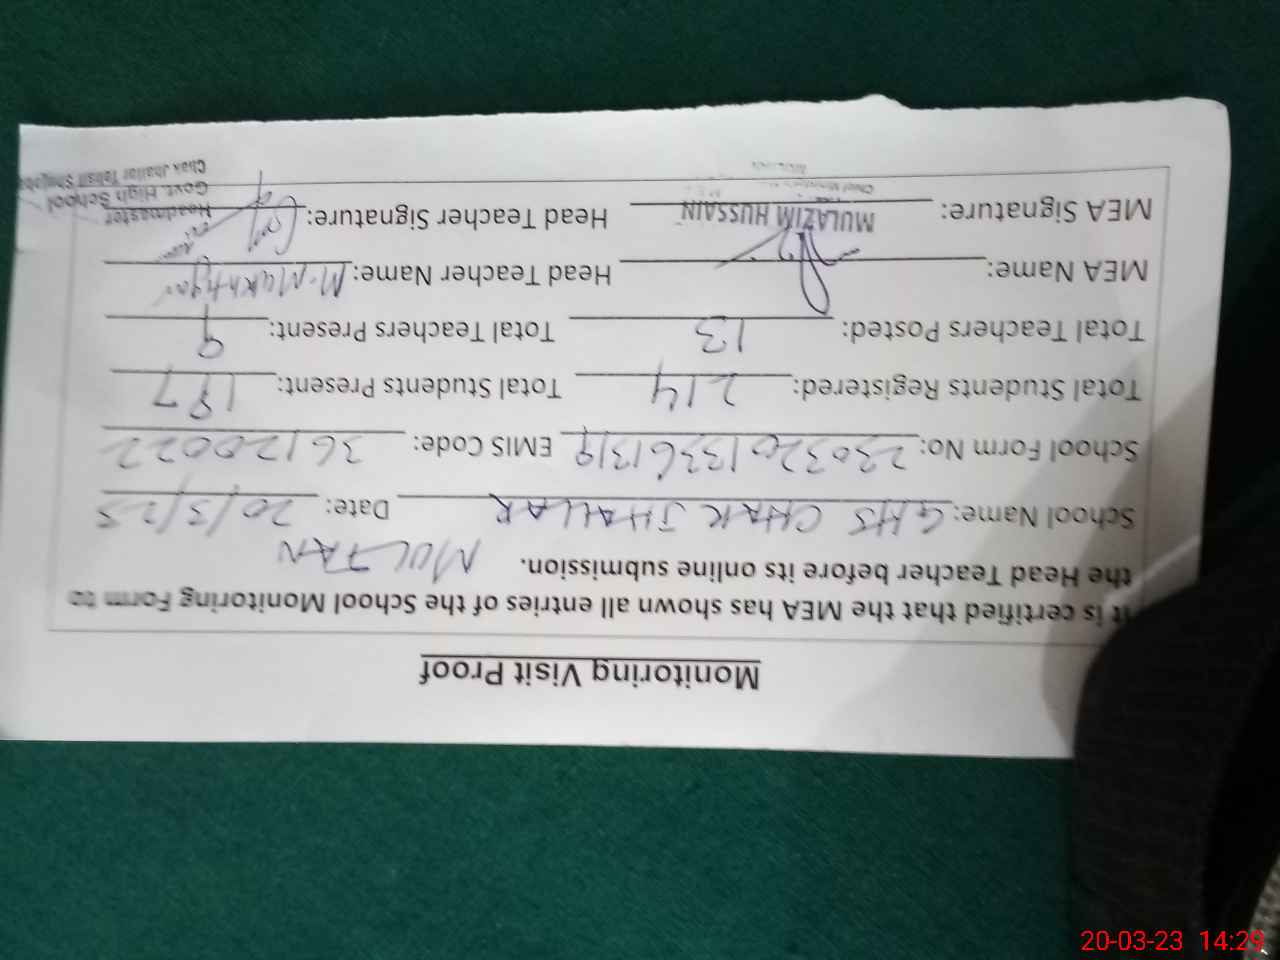 Monitoring Visit Proof
It is certified that the MEA has shown all entries of the School Monitoring Form to
the Head Teacher before its online submission. MULTAN
School Name: GHS CHAK JHALLAR Date: 20/3/23
School Form No: 23032013361319 EMIS Code: 36120022
Total Students Registered: 214 Total Students Present: 187
Total Teachers Posted: 13 Total Teachers Present: 9
MEA Name: Head Teacher Name: M. Mukhtyar
MEA Signature: MULAZIM HUSSAIN Head Teacher Signature: Headmaster
Govt. High School
Chak Jhallar Tehsil
20-03-23 14:29